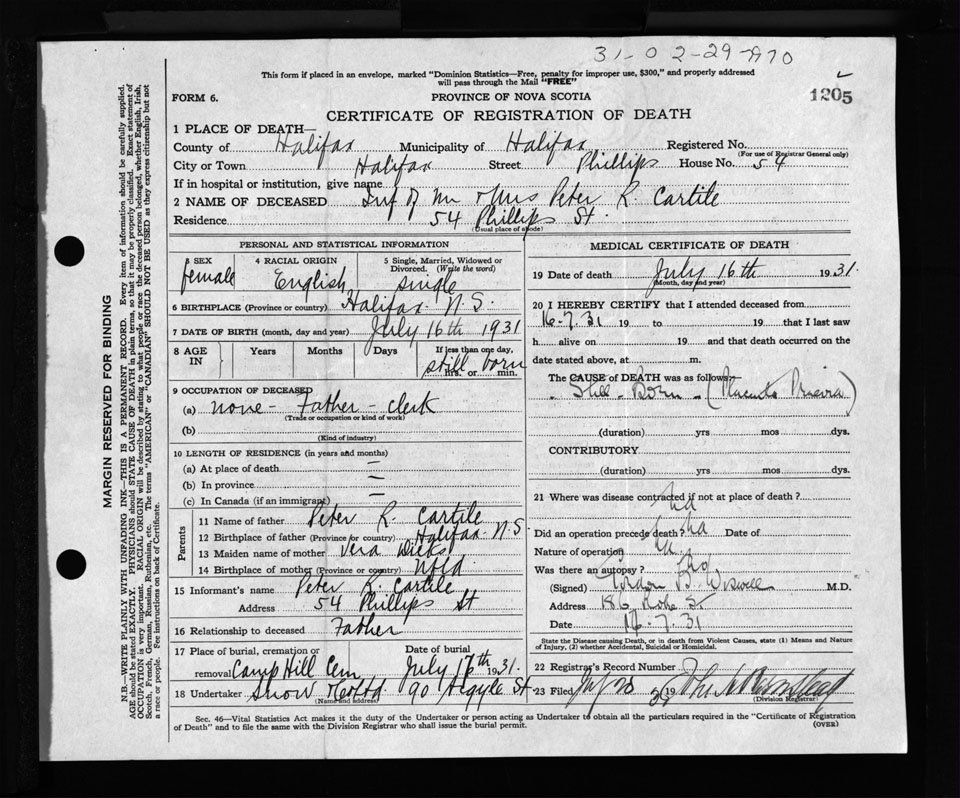 31-02-29-970
This form if placed in an envelope, marked "Dominion Statistics—Free, penalty for improper use, $300," and properly addressed
will pass through the Mail "FREE"
1205
FORM 6.
PROVINCE OF NOVA SCOTIA
CERTIFICATE OF REGISTRATION OF DEATH
1 PLACE OF DEATH—
County of Halifax Municipality of Halifax Registered No.
(For use of Registrar General only)
City or Town Halifax Street Phillips House No. 54
If in hospital or institution, give name
2 NAME OF DECEASED Inf of Mr & Mrs Peter R. Cartile
Residence 54 Phillips St
(Usual place of abode)
PERSONAL AND STATISTICAL INFORMATION
3 SEX female 4 RACIAL ORIGIN English 5 Single, Married, Widowed or Divorced. (Write the word) single
6 BIRTHPLACE (Province or country) Halifax N.S.
7 DATE OF BIRTH (month, day and year) July 16th 1931
8 AGE IN Years Months Days If less than one day, hrs. or min. still born
9 OCCUPATION OF DECEASED
(a) none - Father - clerk
(Trade or occupation or kind of work)
(b)
(Kind of industry)
10 LENGTH OF RESIDENCE (in years and months)
(a) At place of death —
(b) In province —
(c) In Canada (if an immigrant) —
Parents
11 Name of father Peter R. Cartile
12 Birthplace of father (Province or country) Halifax N.S
13 Maiden name of mother Vera Wilks
14 Birthplace of mother (Province or country) Nfld
15 Informant's name Peter R. Cartile
Address 54 Phillips St
16 Relationship to deceased Father
17 Place of burial, cremation, or removal Camp Hill Cem
Date of burial July 17th 1931.
18 Undertaker Snow & Co Ltd 90 Argyle St
(Name and address)
MEDICAL CERTIFICATE OF DEATH
19 Date of death July 16th 1931.
(Month, day and year)
20 I HEREBY CERTIFY that I attended deceased from
16-7-31 19 to 19 that I last saw
h alive on 19 and that death occurred on the
date stated above, at m.
The CAUSE of DEATH was as follows:
Still-Born - (Placenta Previa)
(duration) yrs mos dys.
CONTRIBUTORY
(duration) yrs mos dys.
21 Where was disease contracted if not at place of death?
Did an operation precede death? Date of
Nature of operation
Was there an autopsy? No
(Signed) Gordon B. Wiswell M.D.
Address 186
Date 16-7-31
State the Disease causing Death, or in death from Violent Causes, state (1) Means and Nature
of Injury, (2) whether Accidental, Suicidal or Homicidal.
22 Registrar's Record Number
23 Filed 19
(Division Registrar)
Sec. 46—Vital Statistics Act makes it the duty of the Undertaker or person acting as Undertaker to obtain all the particulars required in the "Certificate of Registration
of Death" and to file the same with the Division Registrar who shall issue the burial permit.
(OVER)
MARGIN RESERVED FOR BINDING
N.B.—WRITE PLAINLY WITH UNFADING INK—THIS IS A PERMANENT RECORD. Every item of information should be carefully supplied.
AGE should be stated EXACTLY. PHYSICIANS should STATE CAUSE OF DEATH in plain terms, so that it may be properly classified. Exact statement of
OCCUPATION is very important. RACIAL ORIGIN will be described by stating to what people or race the deceased person belonged, whether English, Irish,
Scotch, French, German, Russian, Ruthenian, etc. The terms "AMERICAN" or "CANADIAN" SHOULD NOT BE USED as they express citizenship but not
a race or people. See instructions on back of Certificate.